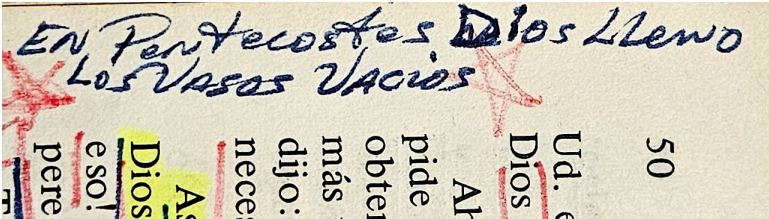 EN PENtecostes Dios LLeNO
Los VASos VACios
50
Ud. e
Dios
Ah
pide
obte
más
dijo:
neces
As
Dios
eso!
pere